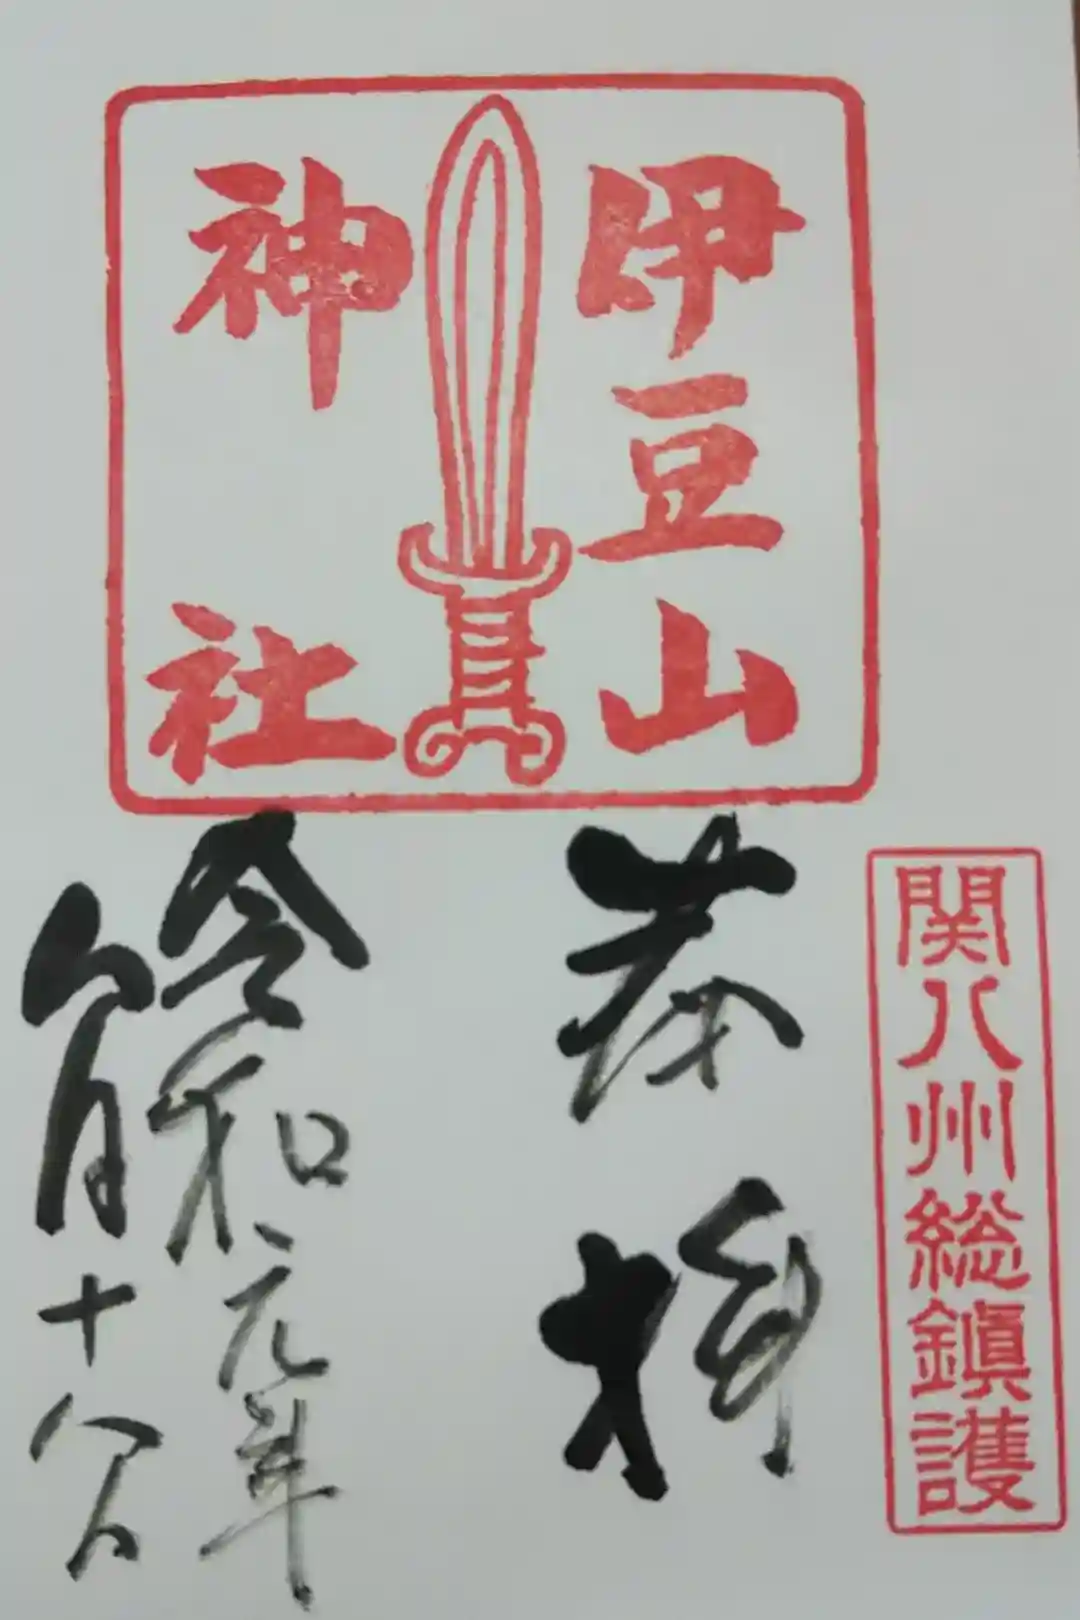 関八州総鎮護
奉拝
伊豆山
神社
令和元年
八月十八日